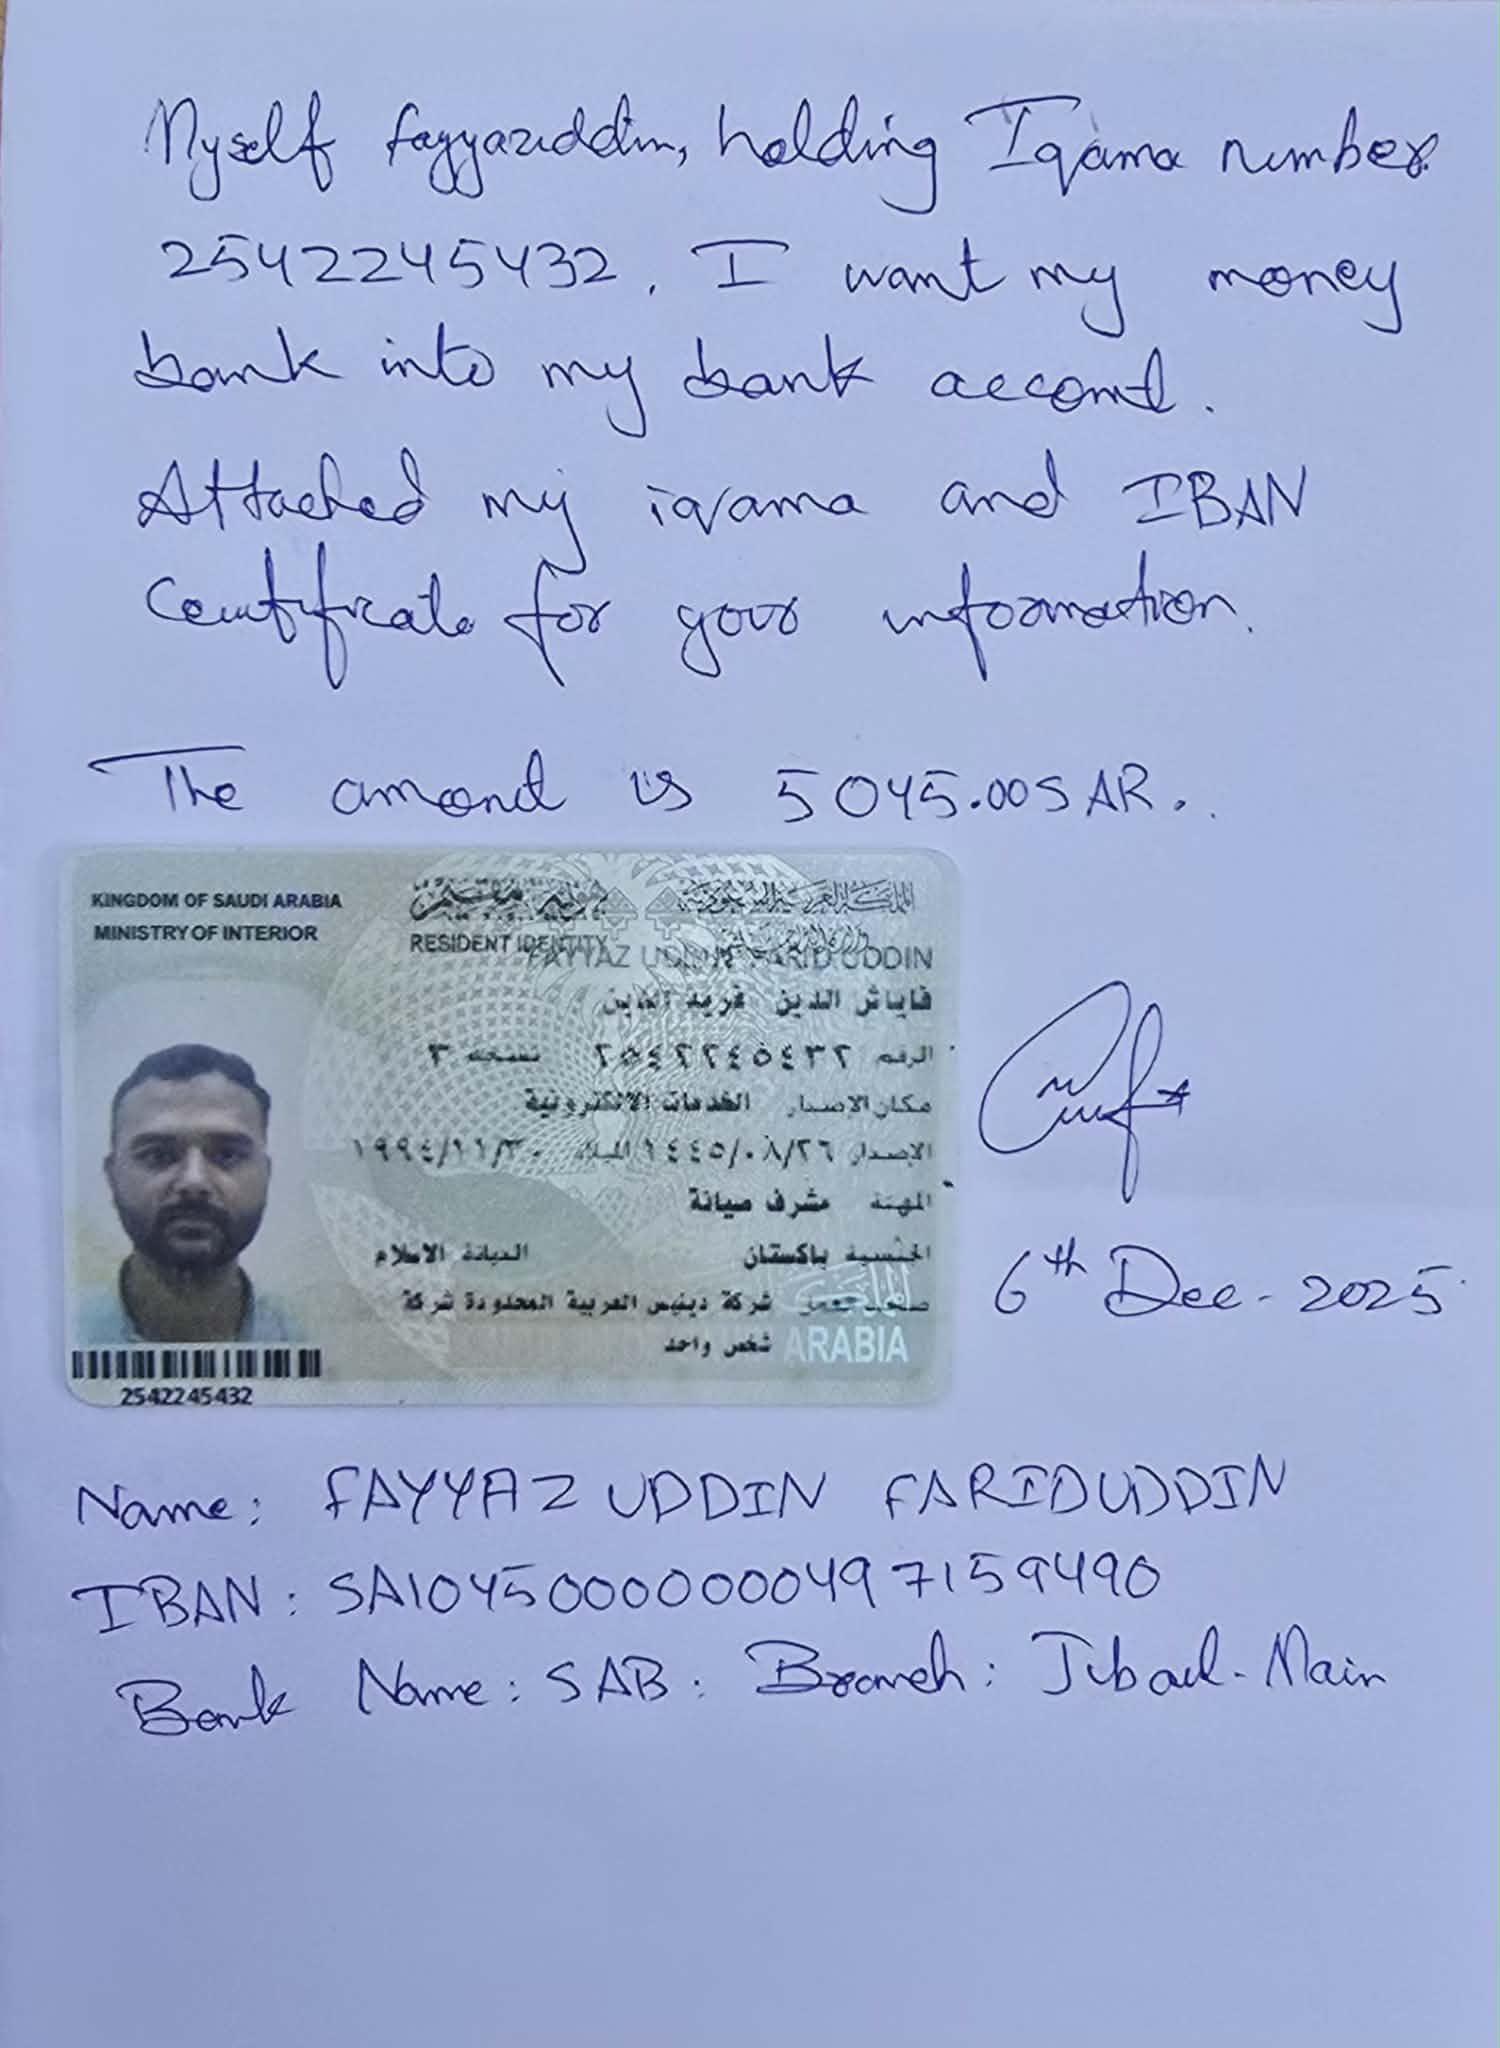 Myself fayyazuddin, holding Iqama number
2542245432. I want my money
bank into my bank account.
Attached my iqama and IBAN
Certificate for your information.
The amount is 5045.00 SAR.
KINGDOM OF SAUDI ARABIA
MINISTRY OF INTERIOR
هوية مقيم
المملكة العربية السعودية
وزارة الداخلية
RESIDENT IDENTITY
FAYYAZ UDDIN FARID UDDIN
فاياش الدين فريد الدين
الرقم ٢٥٤٢٢٤٥٤٣٢ نسخة ٣
مكان الاصدار الخدمات الالكترونية
الإصدار ١٤٤٥/٠٨/٢٦ الميلاد ١٩٩٤/١١/٣٠
المهنة مشرف صيانة
الجنسية باكستان الديانة الاسلام
صاحب العمل شركة دينيس العربية المحدودة شركة
شخص واحد
ARABIA
2542245432
6th Dec - 2025
Name: FAYYAZ UDDIN FARIDUDDIN
IBAN: SA10450000000497159490
Bank Name: SAB: Branch: Jubail-Main